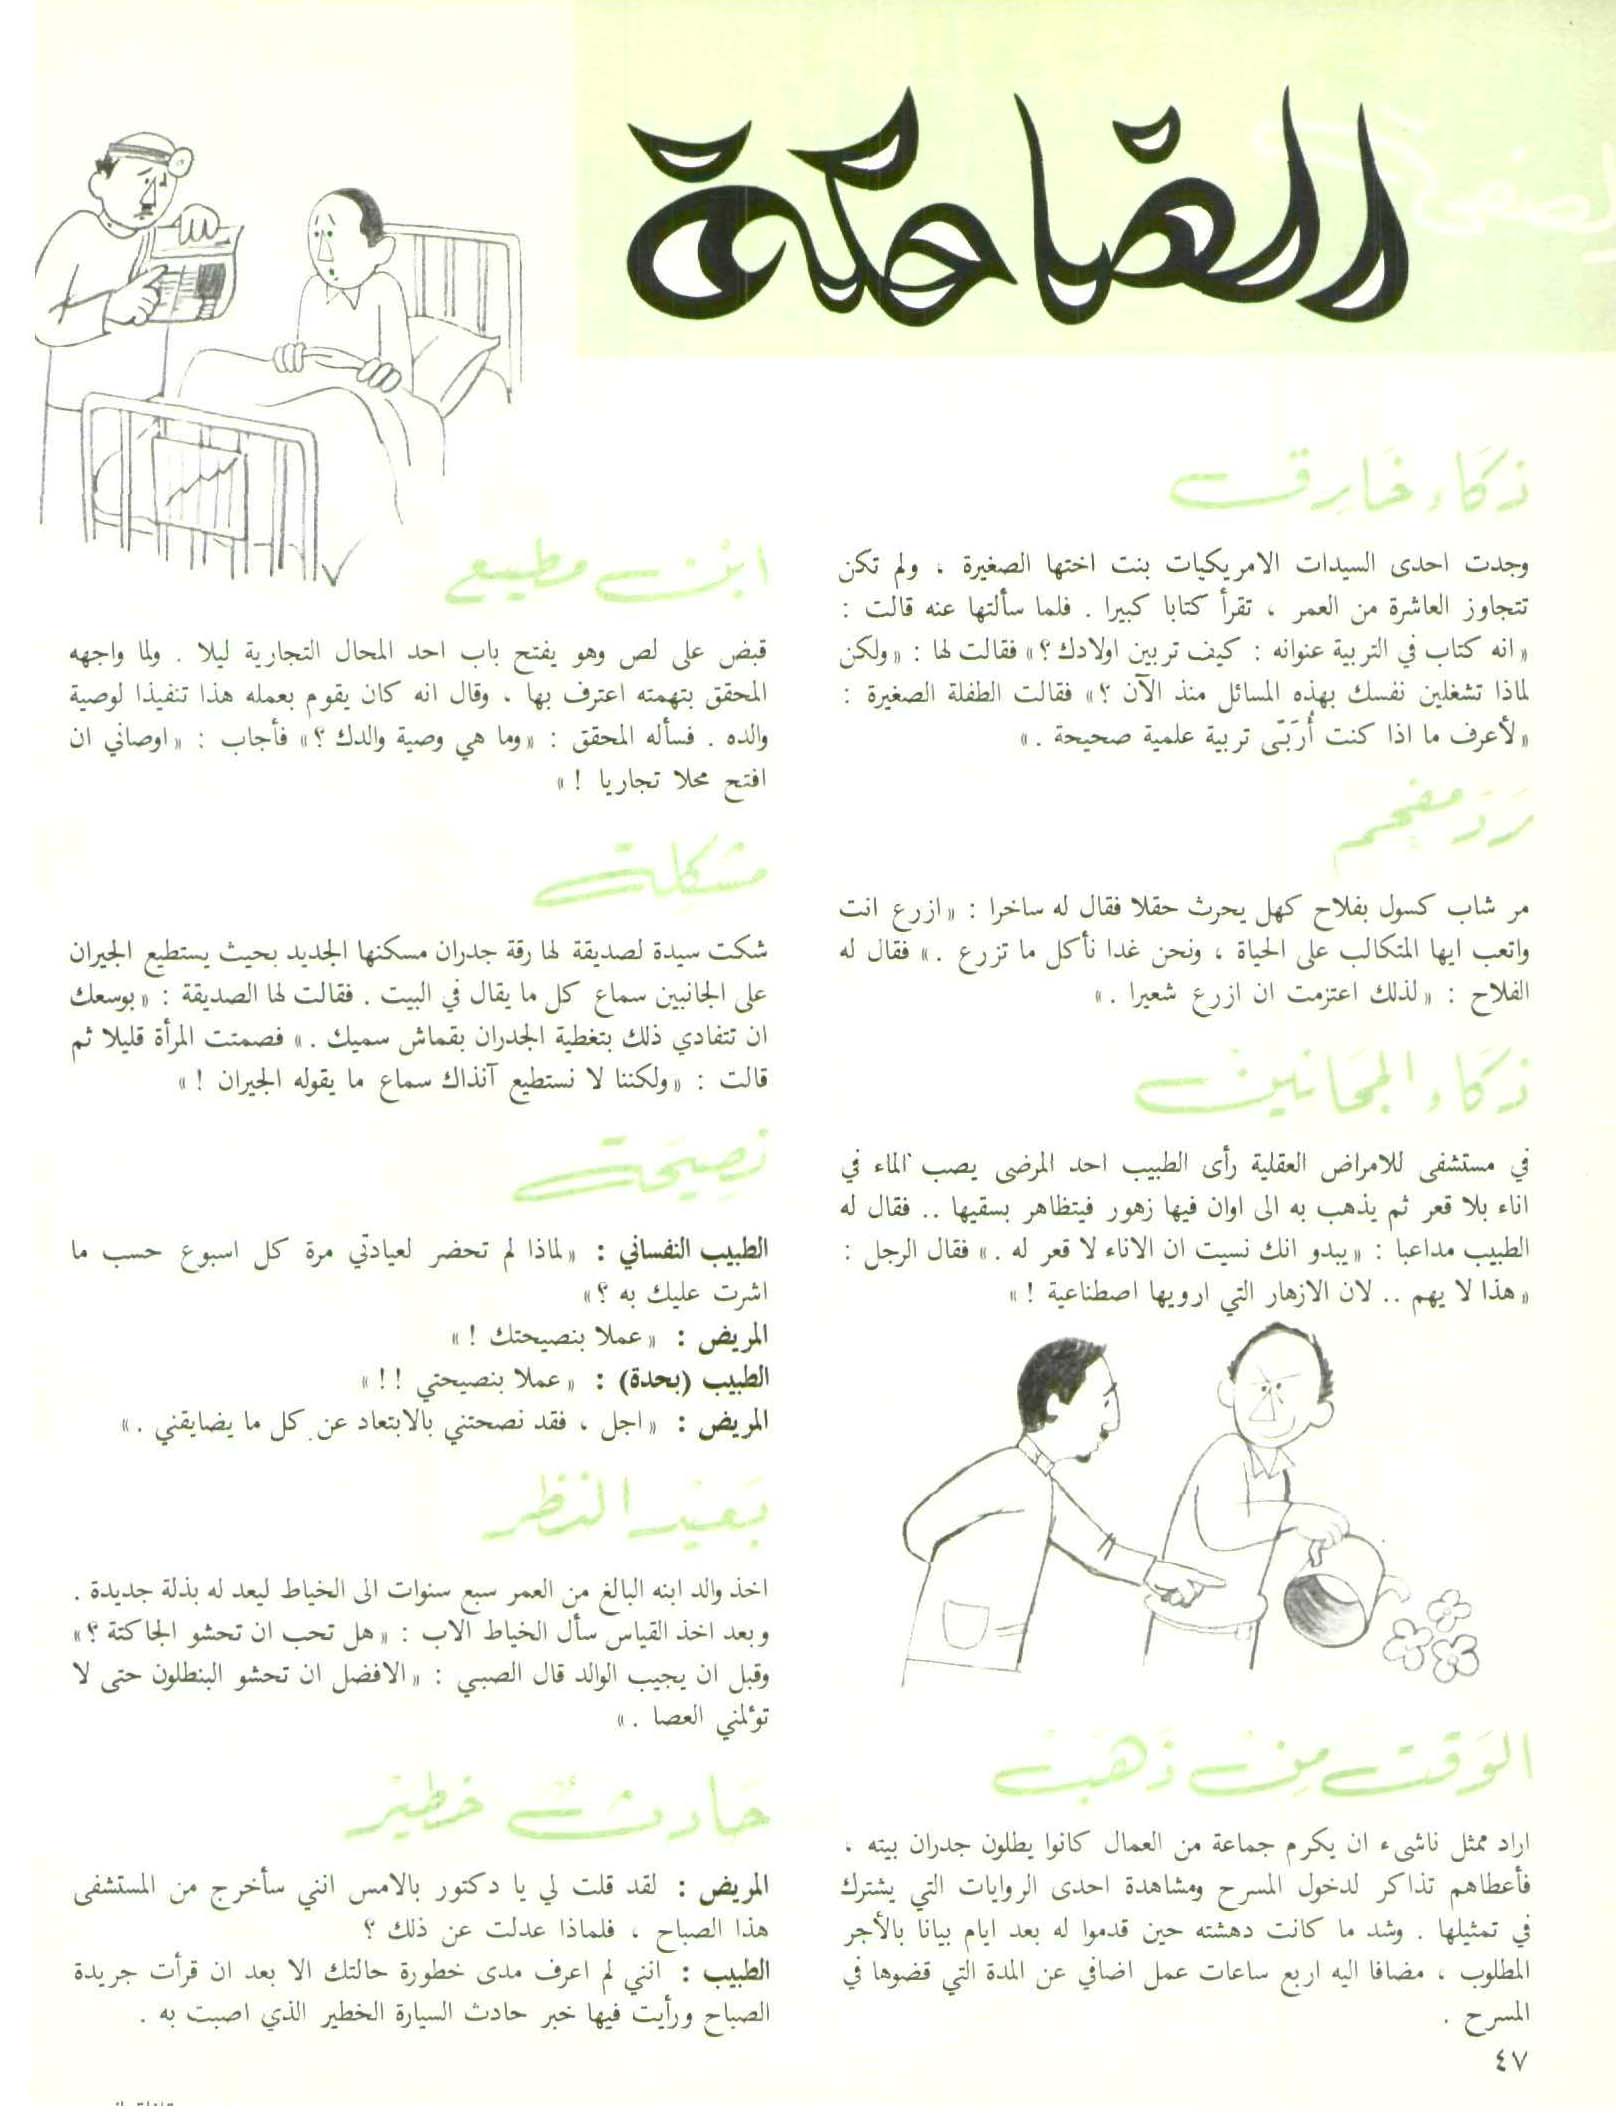 الصفحة
الضاحكة
ذكاء خارق
وجدت احدى السيدات الامريكيات بنت اختها الصغيرة ، ولم تكن
تتجاوز العاشرة من العمر ، تقرأ كتابا كبيرا . فلما سألتها عنه قالت :
« انه كتاب في التربية عنوانه : كيف تربين اولادك ؟» فقالت لها : «ولكن
لماذا تشغلين نفسك بهذه المسائل منذ الآن ؟» فقالت الطفلة الصغيرة :
«لأعرف ما اذا كنت أُرَبّى تربية علمية صحيحة .»
رد مفحم
مر شاب كسول بفلاح كهل يحرث حقلا فقال له ساخرا : «ازرع انت
واتعب ايها المتكالب على الحياة ، ونحن غدا نأكل ما تزرع .» فقال له
الفلاح : «لذلك اعتزمت ان ازرع شعيرا .»
ذكاء المجانين
في مستشفى للامراض العقلية رأى الطبيب احد المرضى يصب الماء في
اناء بلا قعر ثم يذهب به الى اوان فيها زهور فيتظاهر بسقيها .. فقال له
الطبيب مداعبا : «يبدو انك نسيت ان الاناء لا قعر له .» فقال الرجل :
«هذا لا يهم .. لان الازهار التي ارويها اصطناعية !»
الوقت من ذهب
اراد ممثل ناشىء ان يكرم جماعة من العمال كانوا يطلون جدران بيته ،
فأعطاهم تذاكر لدخول المسرح ومشاهدة احدى الروايات التي يشترك
في تمثيلها . وشد ما كانت دهشته حين قدموا له بعد ايام بيانا بالأجر
المطلوب ، مضافا اليه اربع ساعات عمل اضافي عن المدة التي قضوها في
المسرح .
٤٧
ابن مطيع
قبض على لص وهو يفتح باب احد المحال التجارية ليلا . ولما واجهه
المحقق بتهمته اعترف بها ، وقال انه كان يقوم بعمله هذا تنفيذا لوصية
والده . فسأله المحقق : «وما هي وصية والدك ؟» فأجاب : «اوصاني ان
افتح محلا تجاريا !»
مشكلة
شكت سيدة لصديقة لها رقة جدران مسكنها الجديد بحيث يستطيع الجيران
على الجانبين سماع كل ما يقال في البيت . فقالت لها الصديقة : «بوسعك
ان تتفادي ذلك بتغطية الجدران بقماش سميك .» فصمتت المرأة قليلا ثم
قالت : «ولكننا لا نستطيع آنذاك سماع ما يقوله الجيران !»
نصيحة
الطبيب النفساني : «لماذا لم تحضر لعيادتي مرة كل اسبوع حسب ما
اشرت عليك به ؟»
المريض : «عملا بنصيحتك !»
الطبيب (بحدة) : «عملا بنصيحتي !!»
المريض : «اجل ، فقد نصحتني بالابتعاد عن كل ما يضايقني .»
بعيد النظر
اخذ والد ابنه البالغ من العمر سبع سنوات الى الخياط ليعد له بذلة جديدة .
وبعد اخذ القياس سأل الخياط الاب : «هل تحب ان تحشو الجاكتة ؟»
وقبل ان يجيب الوالد قال الصبي : «الافضل ان تحشو البنطلون حتى لا
تؤلمني العصا .»
حادث خطير
المريض : لقد قلت لي يا دكتور بالامس انني سأخرج من المستشفى
هذا الصباح ، فلماذا عدلت عن ذلك ؟
الطبيب : انني لم اعرف مدى خطورة حالتك الا بعد ان قرأت جريدة
الصباح ورأيت فيها خبر حادث السيارة الخطير الذي اصبت به .